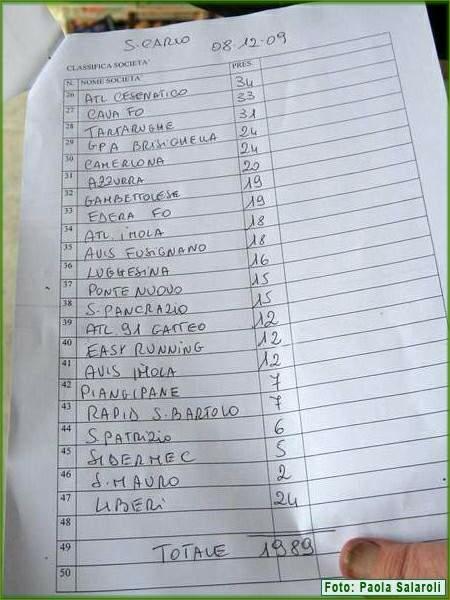 S. CARLO 08.12.09
CLASSIFICA SOCIETA'
N. NOME SOCIETA' PRES.
26 ATL CESENATICO 34
27 CAVA FO 33
28 TARTARUGHE 31
29 GPA BRISIGHELLA 24
30 CAMERLONA 24
31 AZZURRA 20
32 GAMBETTOLESE 19
33 EDERA FO 19
34 ATL. IMOLA 18
35 AVIS FUSIGNANO 18
36 LUGHESINA 16
37 PONTE NUOVO 15
38 S. PANCRAZIO 15
39 ATL 91 GATTEO 12
40 EASY RUNNING 12
41 AVIS IMOLA 12
42 PIANGIPANE 7
43 RAPID S. BARTOLO 7
44 S. PATRIZIO 6
45 SIBERMEC 5
46 S. MAURO 2
47 LIBERI 24
48
49 TOTALE 1989
50
Foto: Paola Salaroli